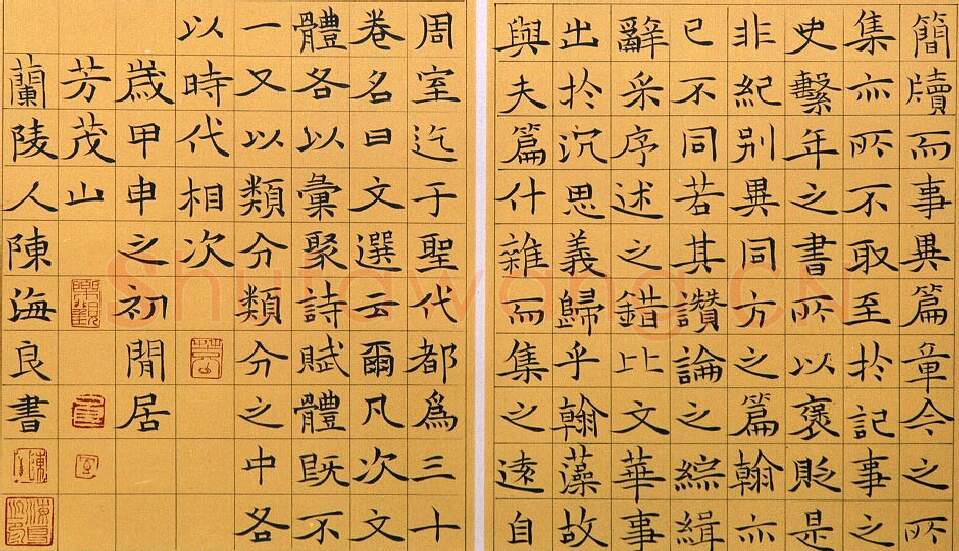 簡牘而事異篇章今之所
集亦所不取至於記事之
史繫年之書所以褒貶是
非紀别異同方之篇翰亦
已不同若其讚論之綜緝
辭采序述之錯比文華事
出於沉思義歸乎翰藻故
與夫篇什雜而集之遠自
周室迄于聖代都爲三十
卷名曰文選云爾凡次文
體各以彙聚詩賦體既不
一又以類分類分之中各
以時代相次
歲甲申之初閒居
芳茂山
蘭陵人陳海良書
Shufawang.CN